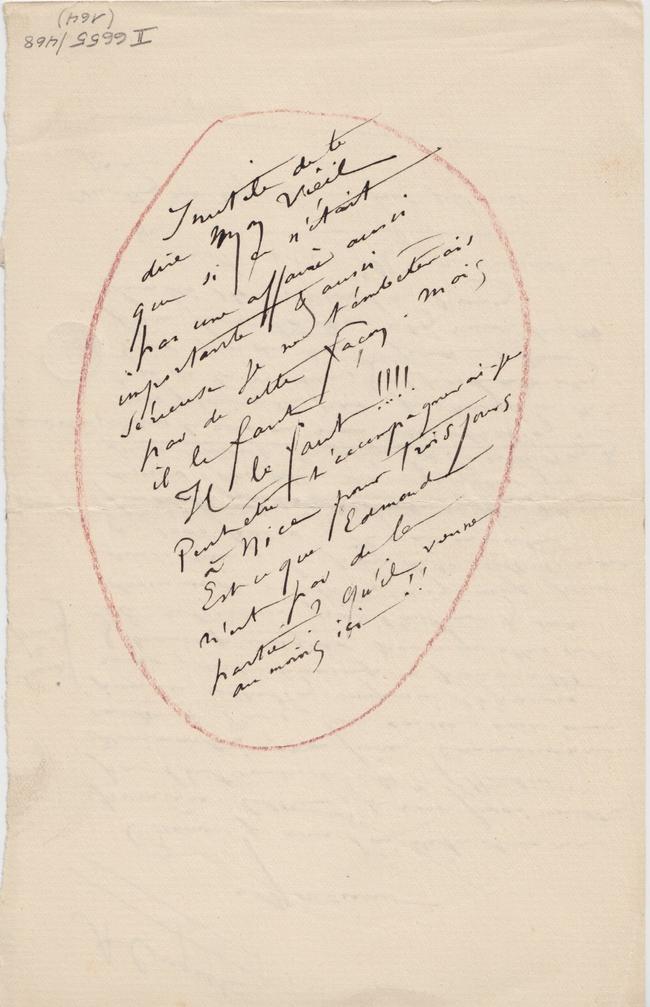 II 6655/468
(164)
Inutile de te
dire mon vieil
que si ce n'était
pas une affaire aussi
importante & aussi
sérieuse je ne t'embêterais
pas de cette façon. mais
il le faut !
Il le faut !!!!
Peut-être t'accompagnerais-je
à Nice pour trois jours
Est ce que Edmond
n'est pas de la
partie ? qu'il vienne
au moins ici !!